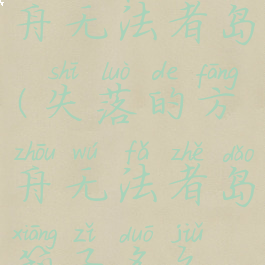 舟无法者岛
shī luò de fāng
(失落的方
zhōu wú fǎ zhě dǎo
舟无法者岛
xiāng zǐ duō jiǔ